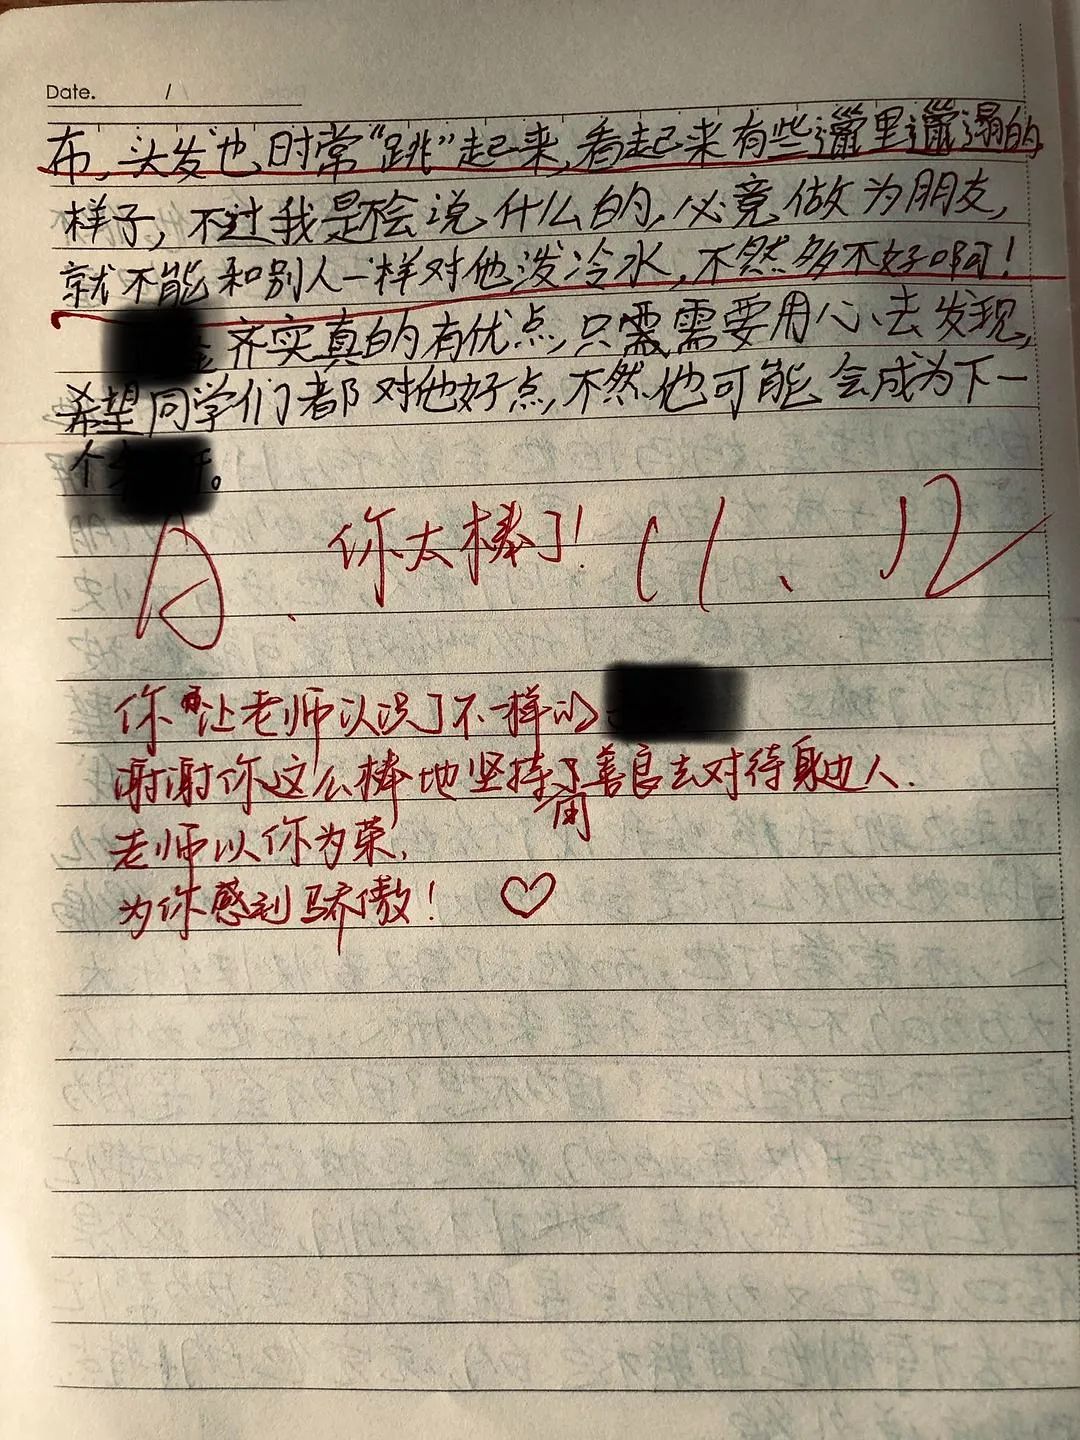 Date. / /
布,头发也时常“跳”起来,看起来有些邋里邋遢的
样子,不过我是不会说什么的,必竟做为朋友,
就不能和别人一样对他泼冷水,不然多不好啊!
齐实真的有优点,只需需要用心去发现,
希望同学们都对他好点,不然他可能会成为下一
个 。
A. 你太棒了! 11、12
你让老师认识了不一样的
谢谢你这么棒地坚持了善良去对待身边人.
用
老师以你为荣,
为你感到骄傲! ♡